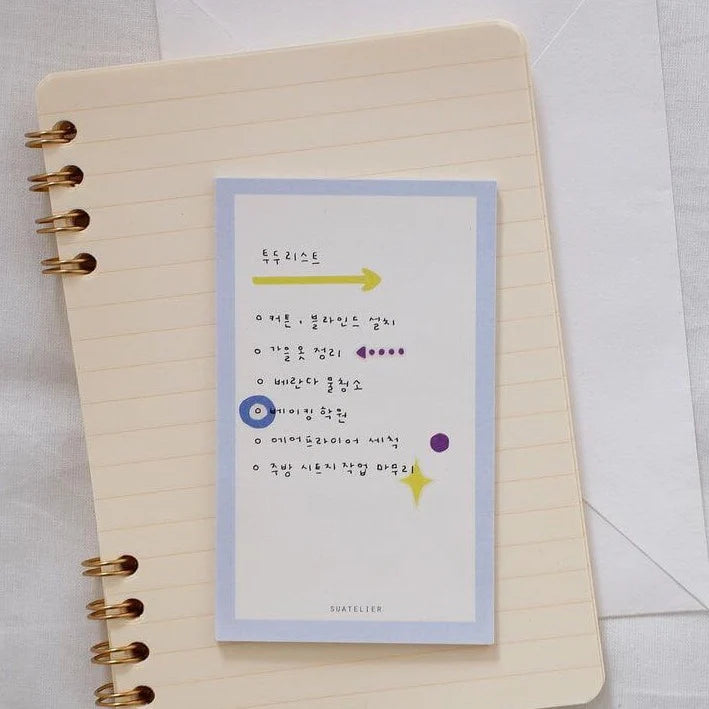 투두리스트
커튼, 블라인드 설치
가을옷 정리
베란다 물청소
베이킹 학원
에어프라이어 세척
주방 시트지 작업 마무리
SUATELIER